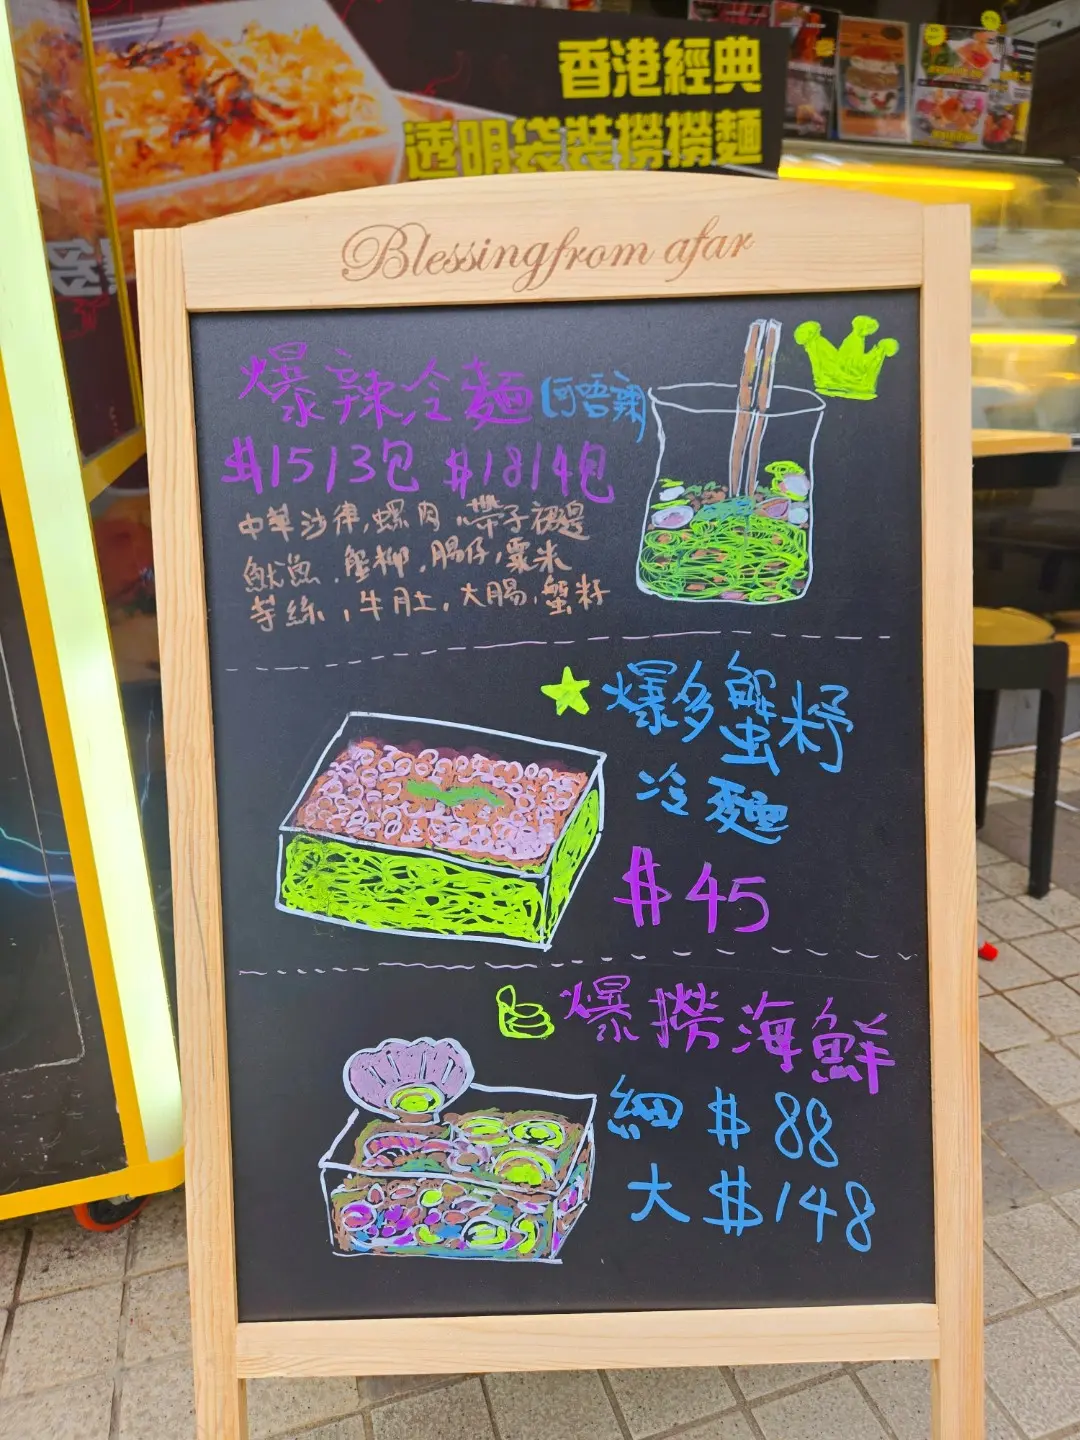 香港經典
透明袋裝撈撈麵
Blessing from afar
爆辣冷麵(可唔辣)
$15/3包 $18/4包
中華沙律,螺肉,帶子裙邊
魷魚,蟹柳,腸仔,粟米
芋絲,牛肚,大腸,蟹籽
爆多蟹籽
冷麵
$45
爆撈海鮮
細 $88
大 $148